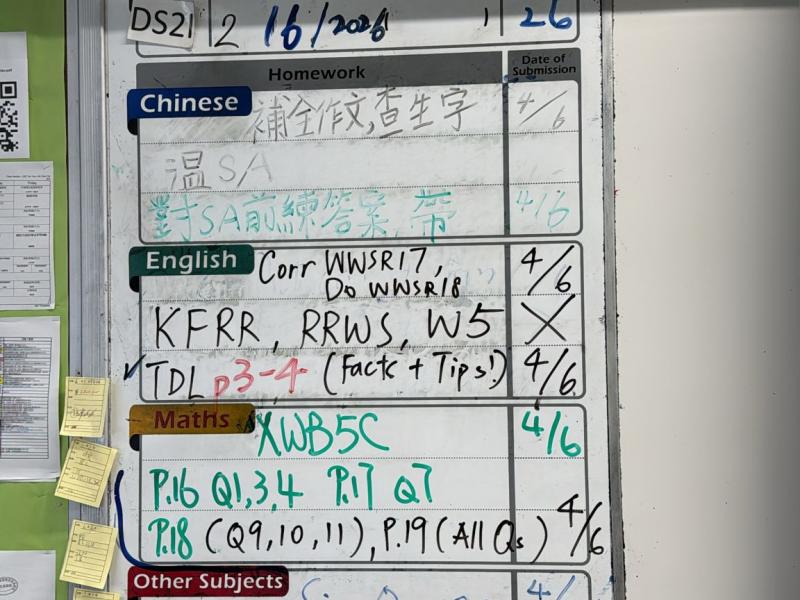 DS21 2 16/2026 26
Homework Date of Submission
Chinese 補全作文,查生字 4/6
溫SA
對SA前練答案,帶 4/6
English Corr WWSR17, 4/6
Do WWSR18
KFRR, RRWS, W5 X
✓TDL p3-4 (Facts + Tips!) 4/6
Maths XWB5C 4/6
P.16 Q1,3,4 P.17 Q7
P.18 (Q9,10,11), P.19 (All Qs) 4/6
Other Subjects 4/